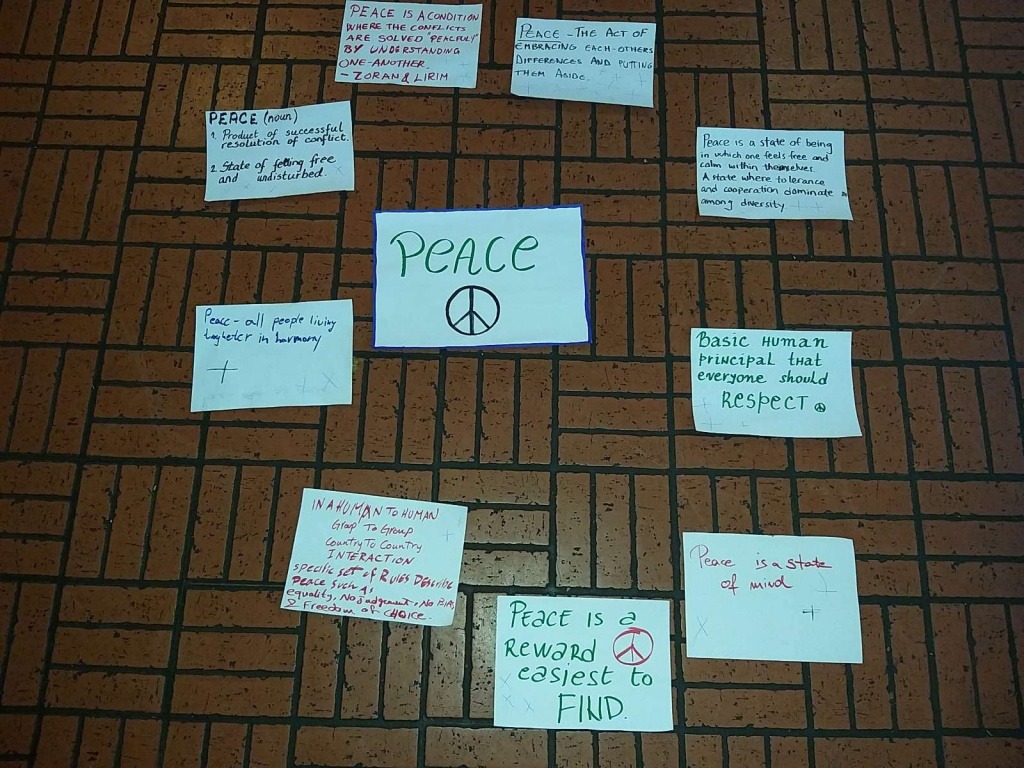 PEACE IS A CONDITION
WHERE THE CONFLICTS
ARE SOLVED "PEACFULY"
BY UNDERSTANDING
ONE-ANOTHER.
- ZORAN & LIRIM
PEACE - THE ACT OF
EMBRACING EACH-OTHERS
DIFFERENCES AND PUTTING
THEM ASIDE.
PEACE (noun)
1. Product of successful
resolution of conflict.
2. State of felling free
and undisturbed.
Peace is a state of being
in which one feels free and
calm within themselves.
A state where tolerance
and cooperation dominate
among diversity.
PEACE
Peace - all people living
togheter in harmony
Basic HUMAN
principal that
everyone should
RESPECT
IN A HUMAN TO HUMAN
Group To Group
Country To Country
INTERACTION
specific set of RULES DEscribe
peace such as
equality, No judgement, No
& Freedom of CHOICE.
Peace is a state
of mind
PEACE IS a
REWARD
easiest to
FIND.